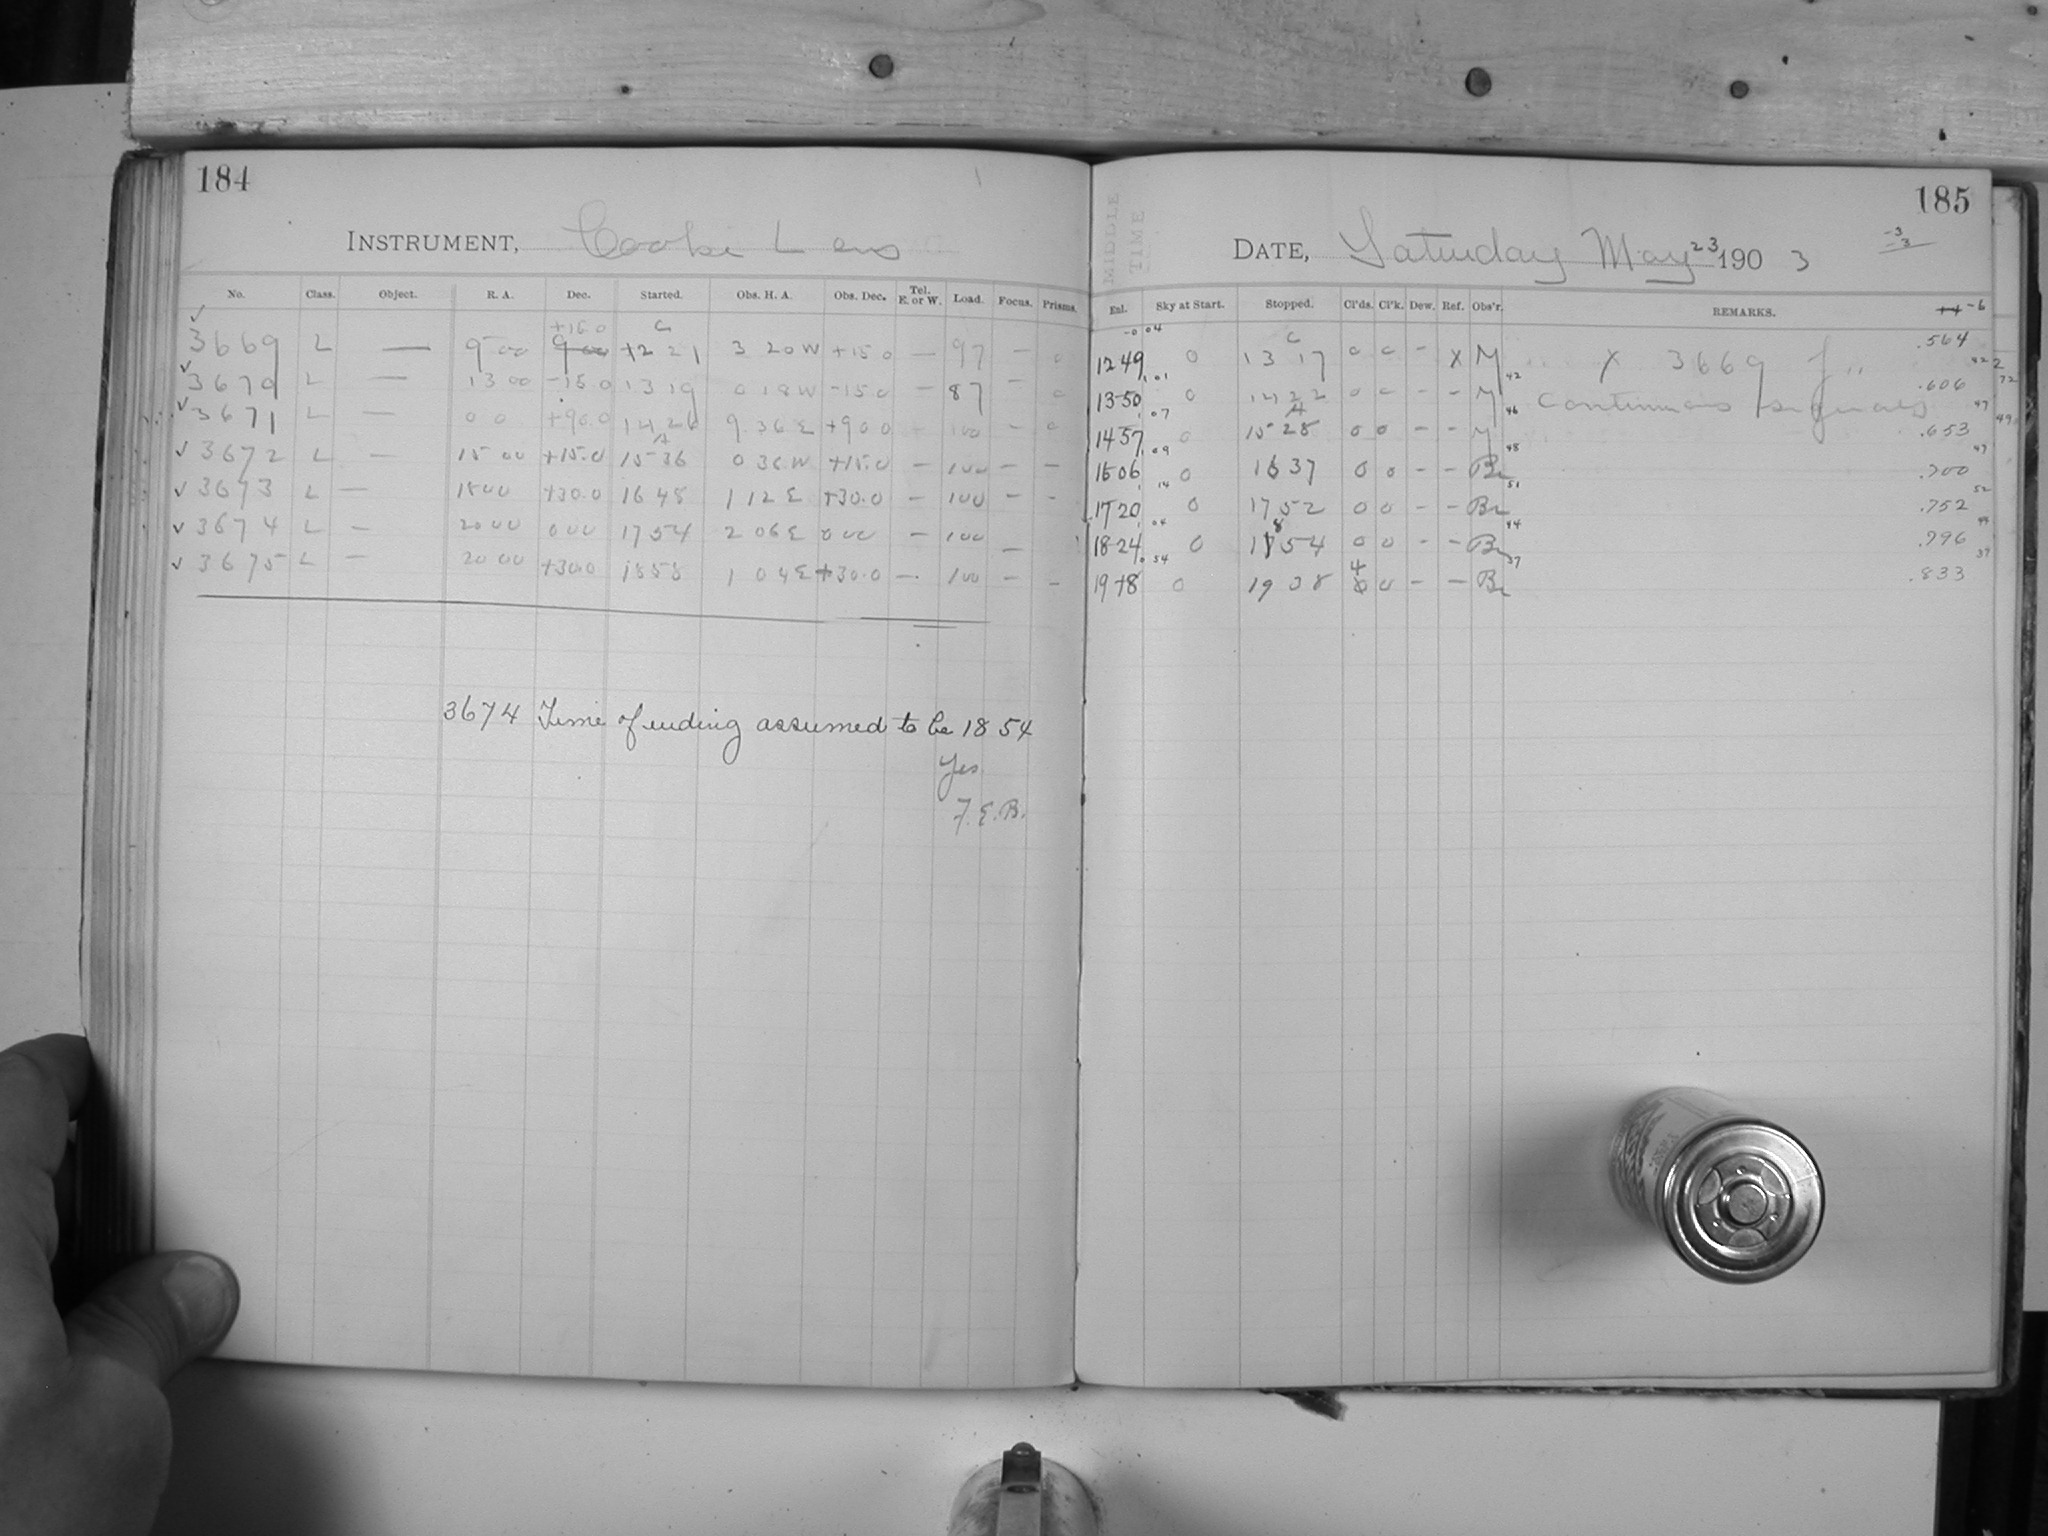 184
INSTRUMENT, Cooke Lens
No. Class. Object. R. A. Dec. Started. Obs. H. A. Obs. Dec. Tel. E. or W. Load. Focus. Prisms.
+15 0 c
✓ 3669 L — 9 00 9 00 12 21 3 20 W +15 0 — 97 — 0
✓ 3670 L — 13 00 -15.0 13 19 0 18 W -15 0 — 87 — 0
✓ 3671 L — 0 0 +90.0 14 26 9 36 E +90 0 100 — 0
✓ 3672 L — 15 00 +15.0 15 36 0 36 W +15.0 — 100 — —
✓ 3673 L — 18 00 +30.0 16 48 1 12 E +30.0 — 100 — -
✓ 3674 L — 20 00 0 00 17 54 2 06 E 0 00 — 100 —
✓ 3675 L — 20 00 +30.0 18 58 1 04 E +30.0 —. 100 — -
3674 Time of ending assumed to be 18 54
Yes
F. E. B.
185
MIDDLE TIME
DATE, Saturday May 23 190 3
Enl. Sky at Start. Stopped. Cl'ds. Cl'k. Dew. Ref. Obs'r. REMARKS. -6
12 49 0 13 17 0 0 - X M X 3669 .564
13 50 0 14 22 0 0 - - M Continuous .606
14 57 0 15 28 0 0 - - M .653
16 06 0 16 37 0 0 - - Br .700
17 20 0 17 52 0 0 - - Br .752
18 24 0 18 54 0 0 - - Br .796
19 18 0 19 38 0 - - Br .833